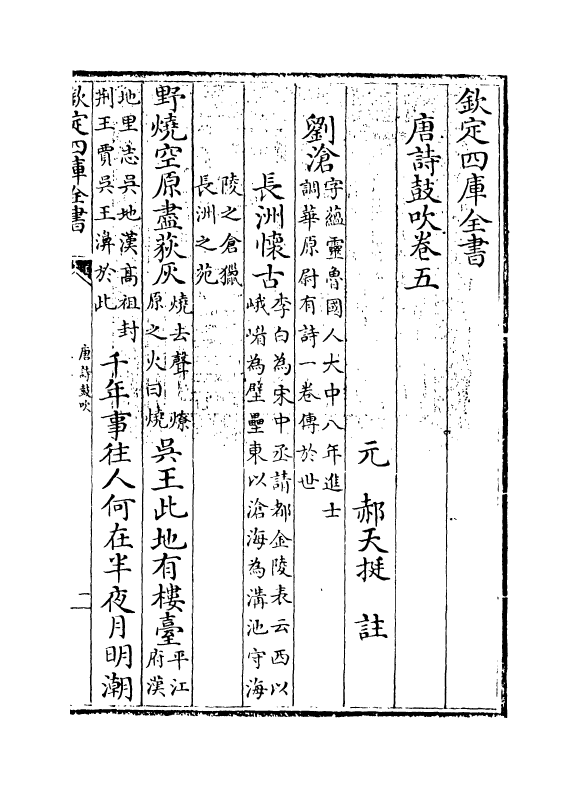 欽定四庫全書
唐詩鼓吹卷五
元 郝天挺 註
劉滄字蘊靈魯國人大中八年進士
調華原尉有詩一卷傳於世
長洲懷古李白為宋中丞請都金陵表云西以
峨嵋為壁壘東以滄海為溝池守海
陵之倉獵
長洲之苑
野燒空原盡荻灰燒去聲 燎
原之火曰燒吳王此地有樓臺平江
府漢
地里志吳地漢髙祖封
荆王賈吳王濞於此千年事往人何在半夜月明潮
欽定四庫全書
唐詩鼓吹
一